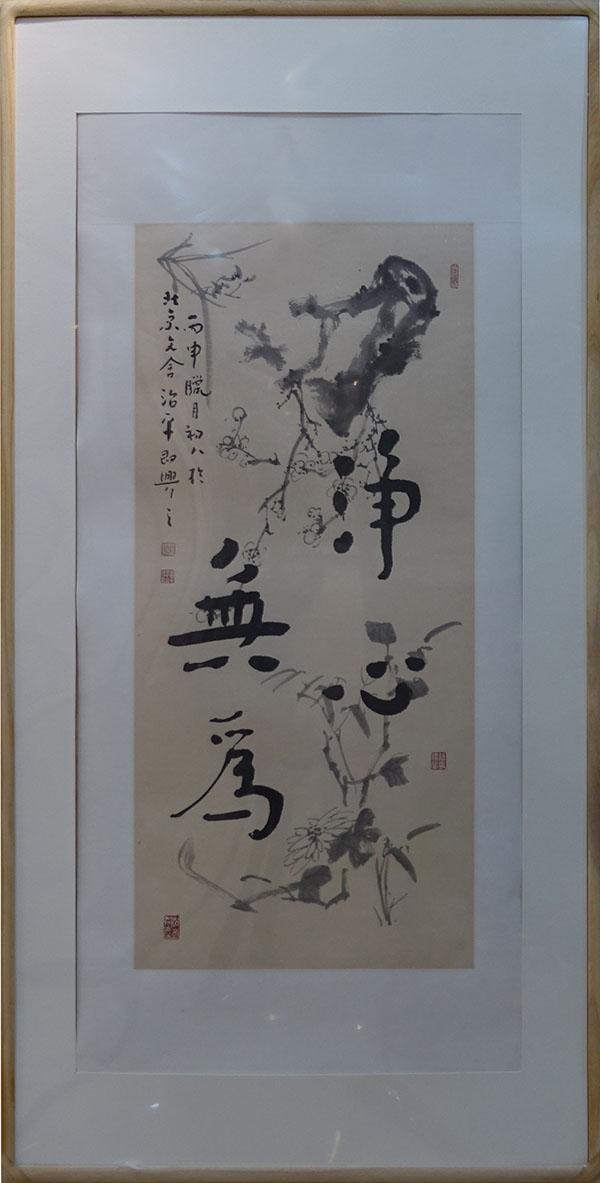 淨心
無爲
丙申臘月初八於
北京文舍治平即興